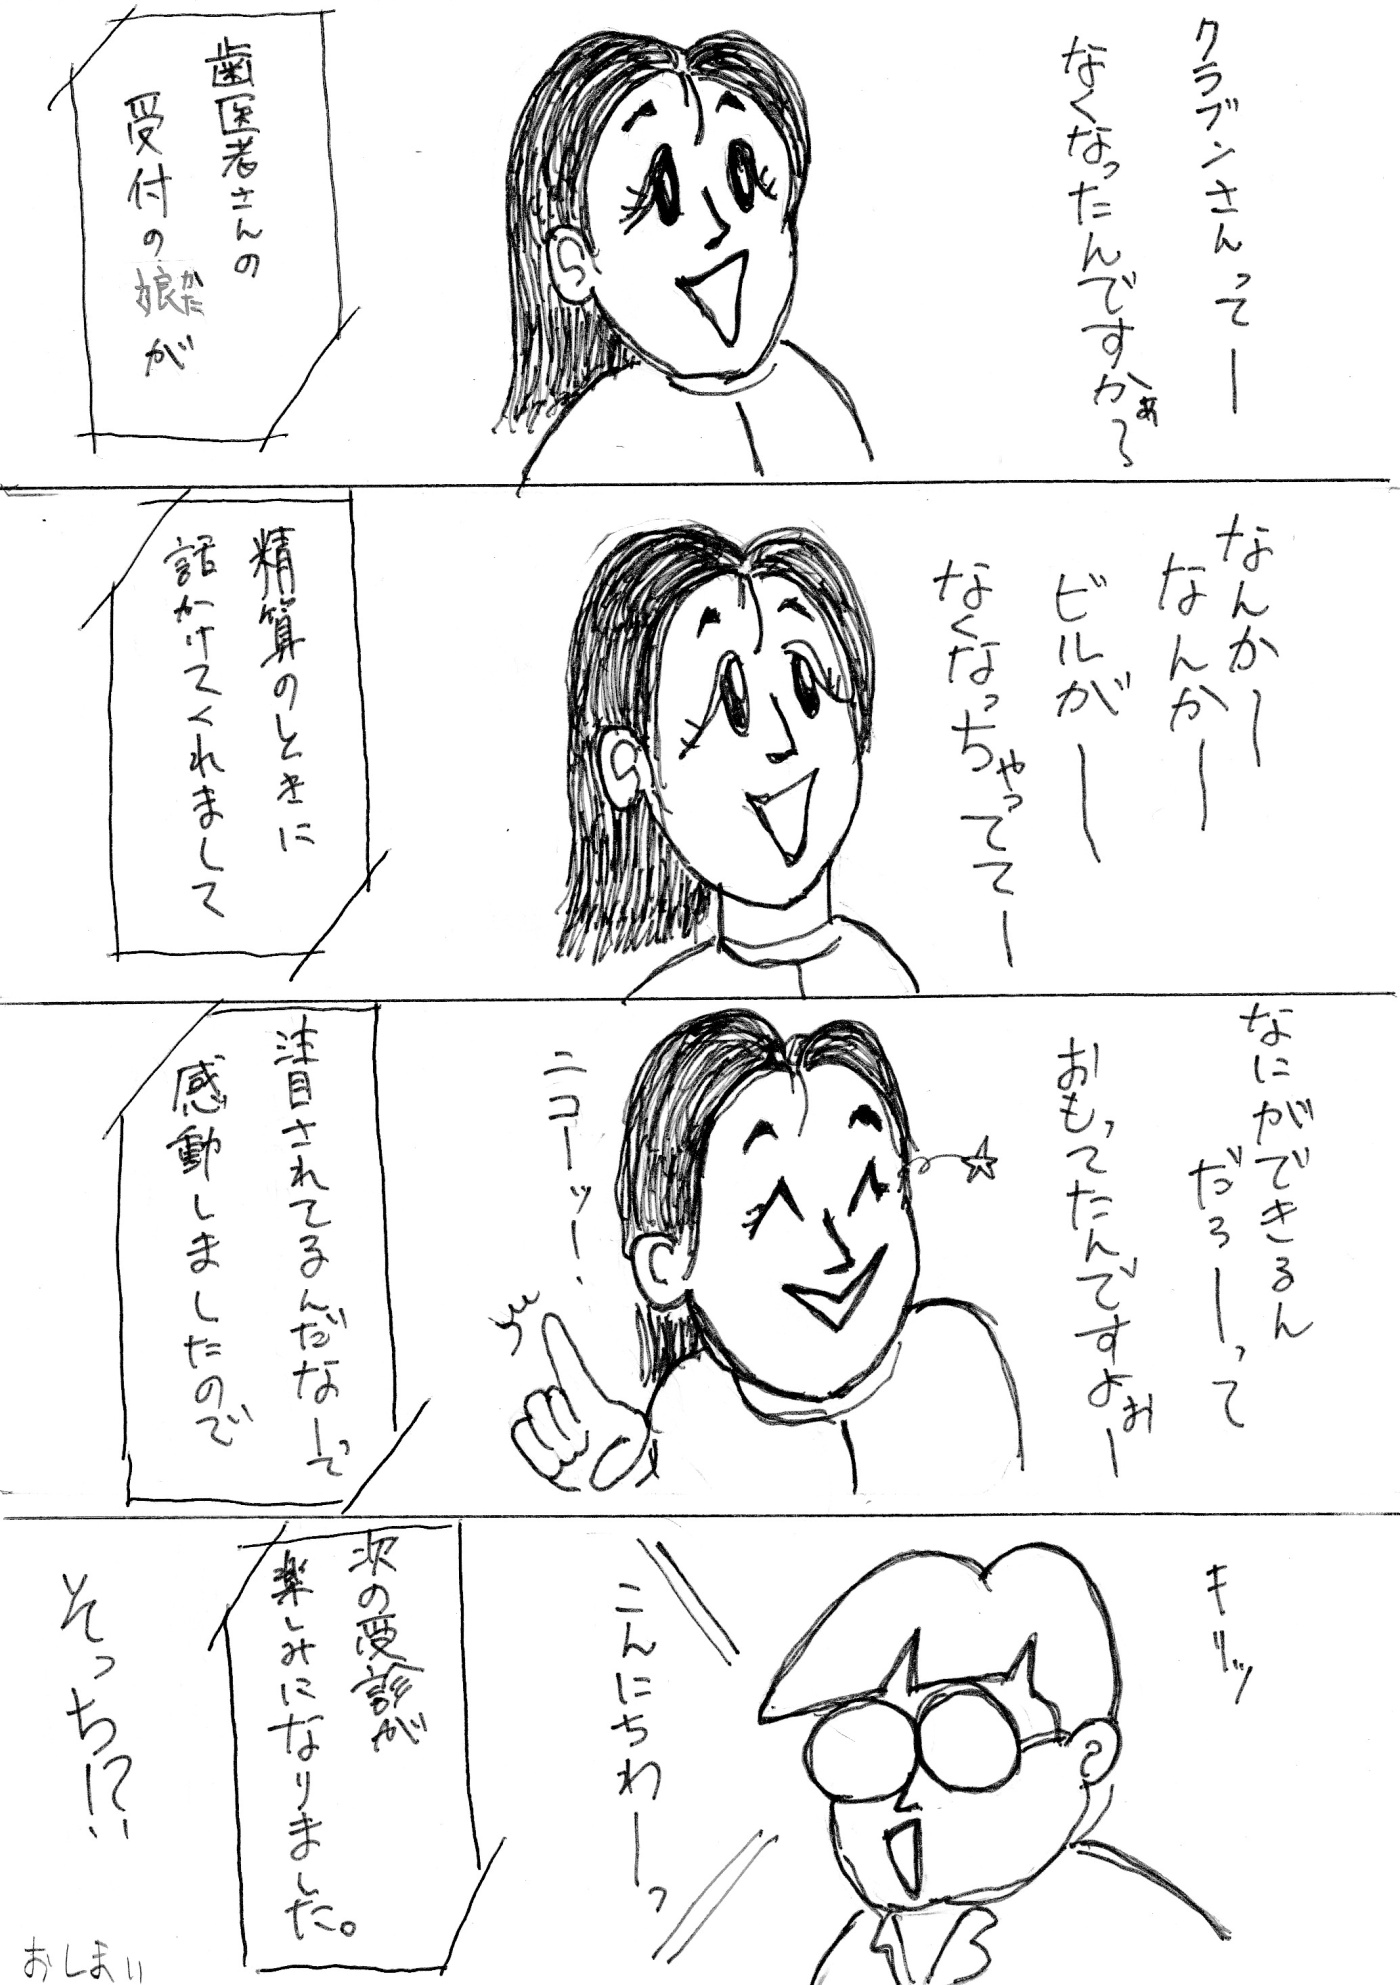 クラブンさんってー
なくなったんですかぁ～
歯医者さんの
受付の娘が
かた
なんかー
なんかー
ビルがー
なくなっちゃっててー
精算のときに
話かけてくれまして
なにができるん
だろーって
おもってたんですよおー
ニコーッ！
注目されてるんだなーって
感動しましたので
キリッ
こんにちわーっ
次の受診が
楽しみになりました。
そっち!?
おしまい